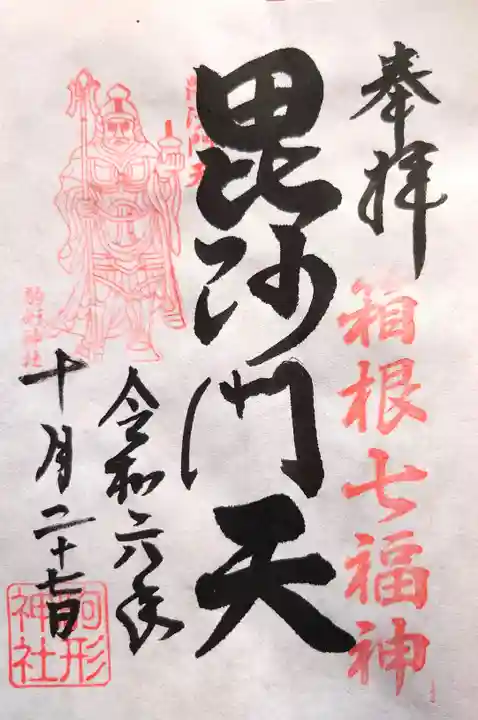 奉拝
箱根七福神
毘沙門天
毘沙門天
駒形神社
令和六年
十月二十七日
駒形
神社